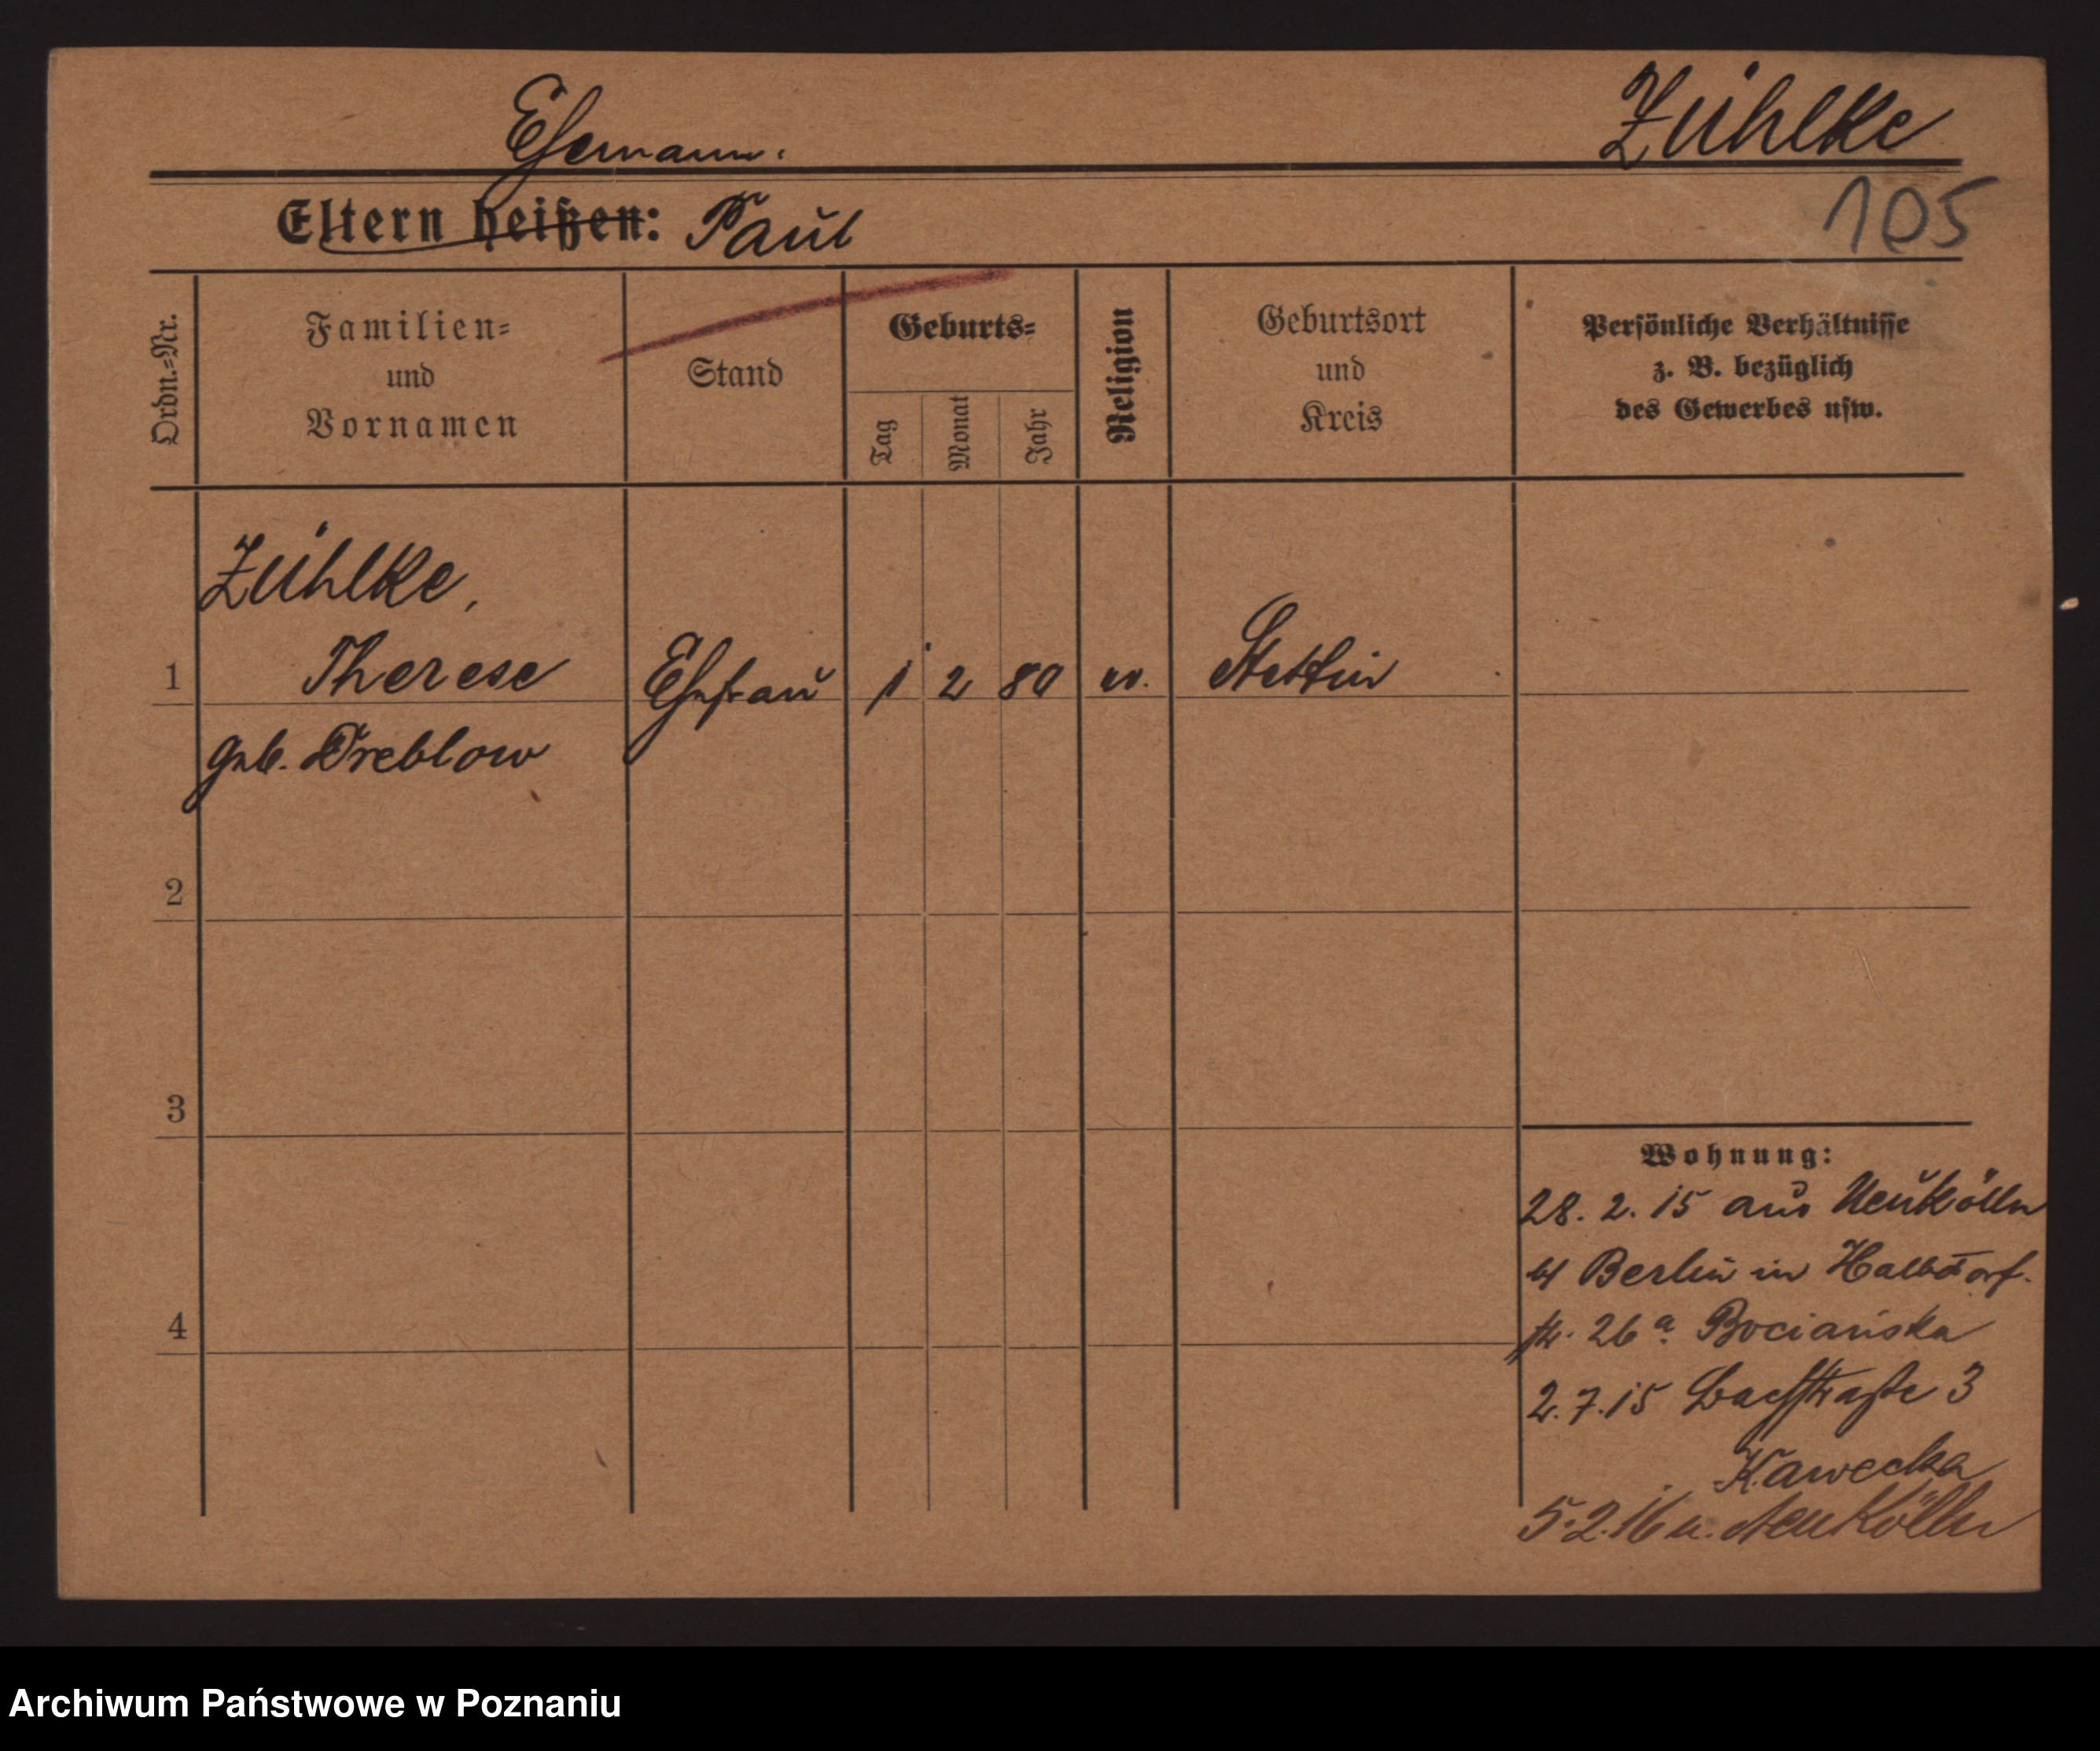 Ehemann.
Zühlke
Eltern heißen: Paul
105
Ordn.=Nr.
Familien=
und
Vornamen
Stand
Geburts=
Tag
Monat
Jahr
Religion
Geburtsort
und
Kreis
Persönliche Verhältnisse
z. B. bezüglich
des Gewerbes usw.
Zühlke,
1 Therese Ehefrau 1 2 80 ev. Stettin
geb. Dreblow
2
3
4
Wohnung:
28. 2. 15 aus Neukölln
Berlin in Halbdorf-
str. 26a Bociańska
2.7.15 Bachstraße 3
Kawecka
5.2.16 n. Neukölln
Archiwum Państwowe w Poznaniu